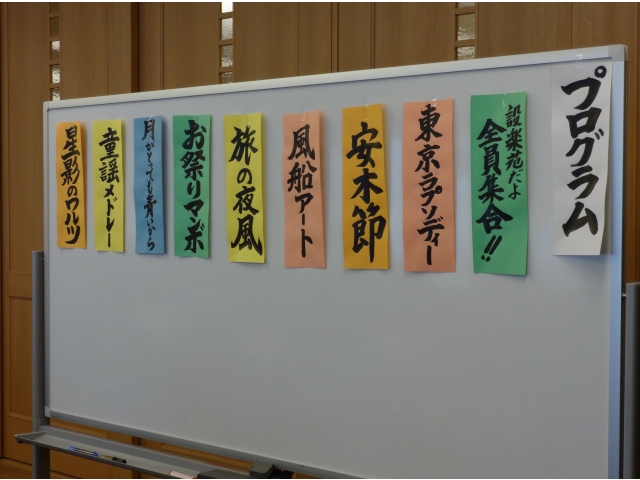 プログラム
設楽苑だよ
全員集合!!
東京ラプソディー
安木節
風船アート
旅の夜風
お祭りマンボ
月がとっても青いから
童謡メドレー
星影のワルツ